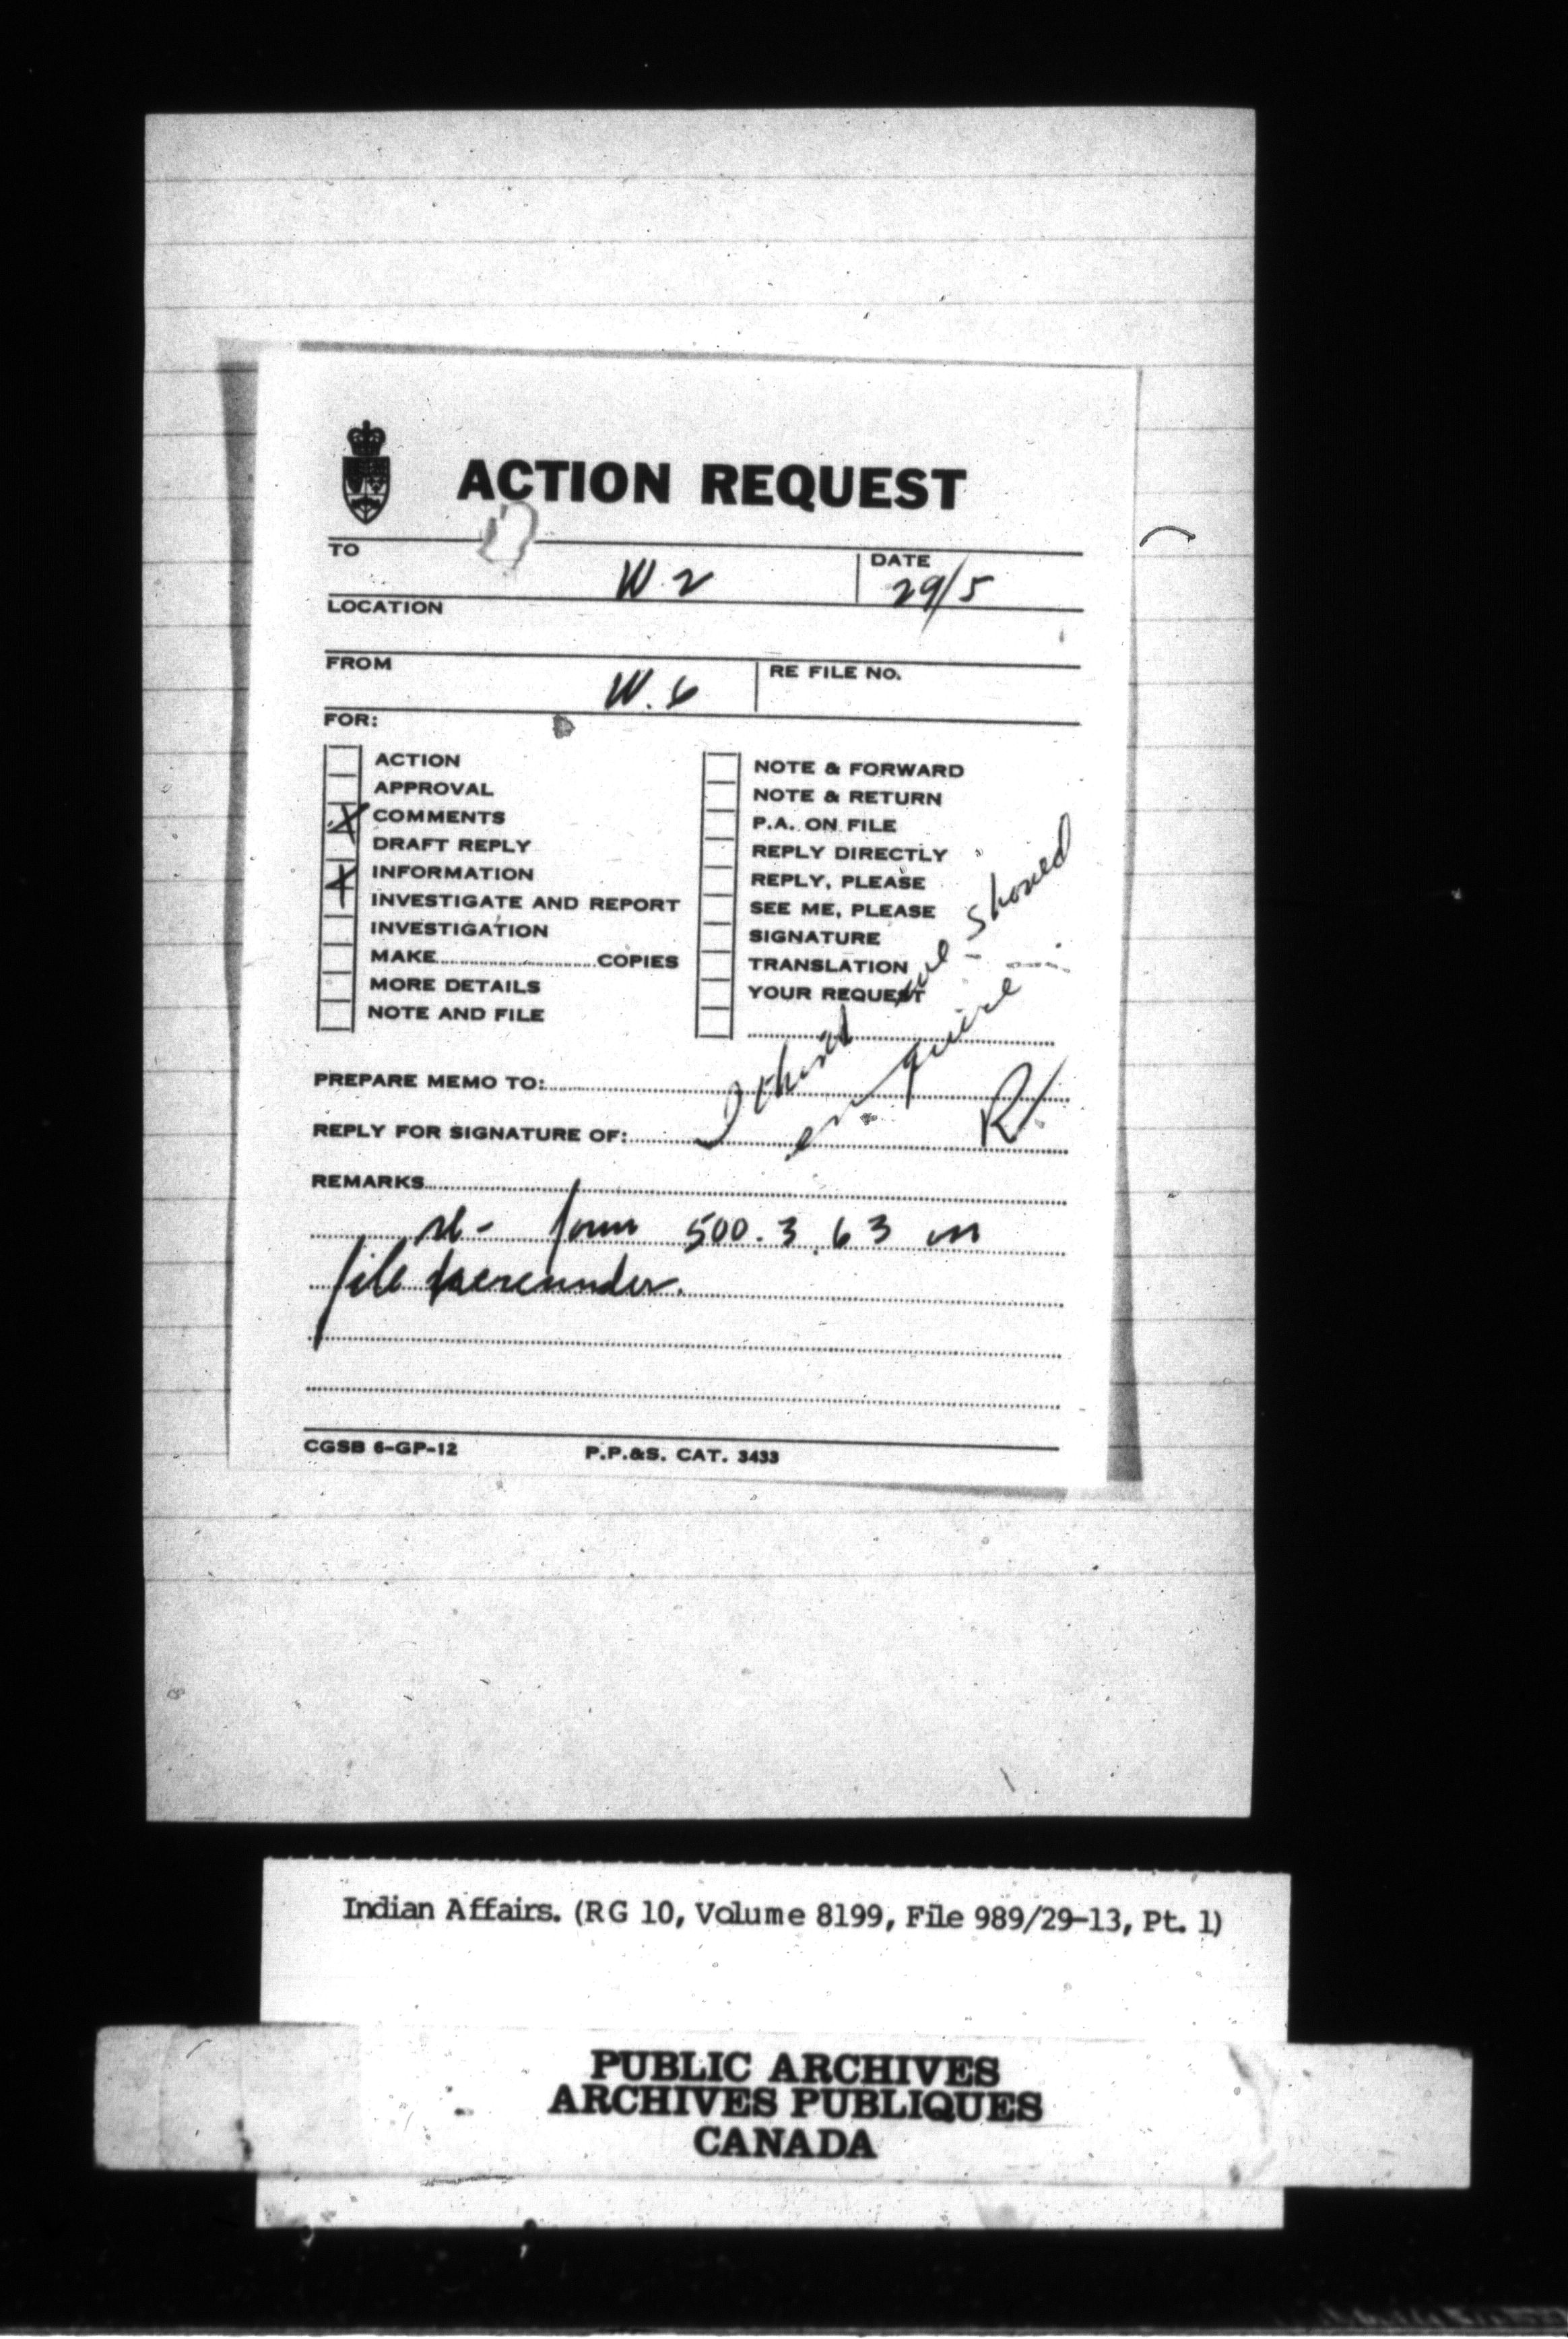 ACTION REQUEST
TO W.2 DATE 29/5
LOCATION
FROM W.6 RE FILE NO.
FOR:
ACTION
APPROVAL
X COMMENTS
DRAFT REPLY
X INFORMATION
INVESTIGATE AND REPORT
INVESTIGATION
MAKE..........COPIES
MORE DETAILS
NOTE AND FILE
NOTE & FORWARD
NOTE & RETURN
P.A. ON FILE
REPLY DIRECTLY
REPLY, PLEASE
SEE ME, PLEASE
SIGNATURE
TRANSLATION
YOUR REQUEST
I think we should
enquire
R.
PREPARE MEMO TO:
REPLY FOR SIGNATURE OF:
REMARKS
re- form 500.3.63 on
file hereunder.
CGSB 6-GP-12 P.P.&S. CAT. 3433
Indian Affairs. (RG 10, Volume 8199, File 989/29-13, Pt. 1)
PUBLIC ARCHIVES
ARCHIVES PUBLIQUES
CANADA